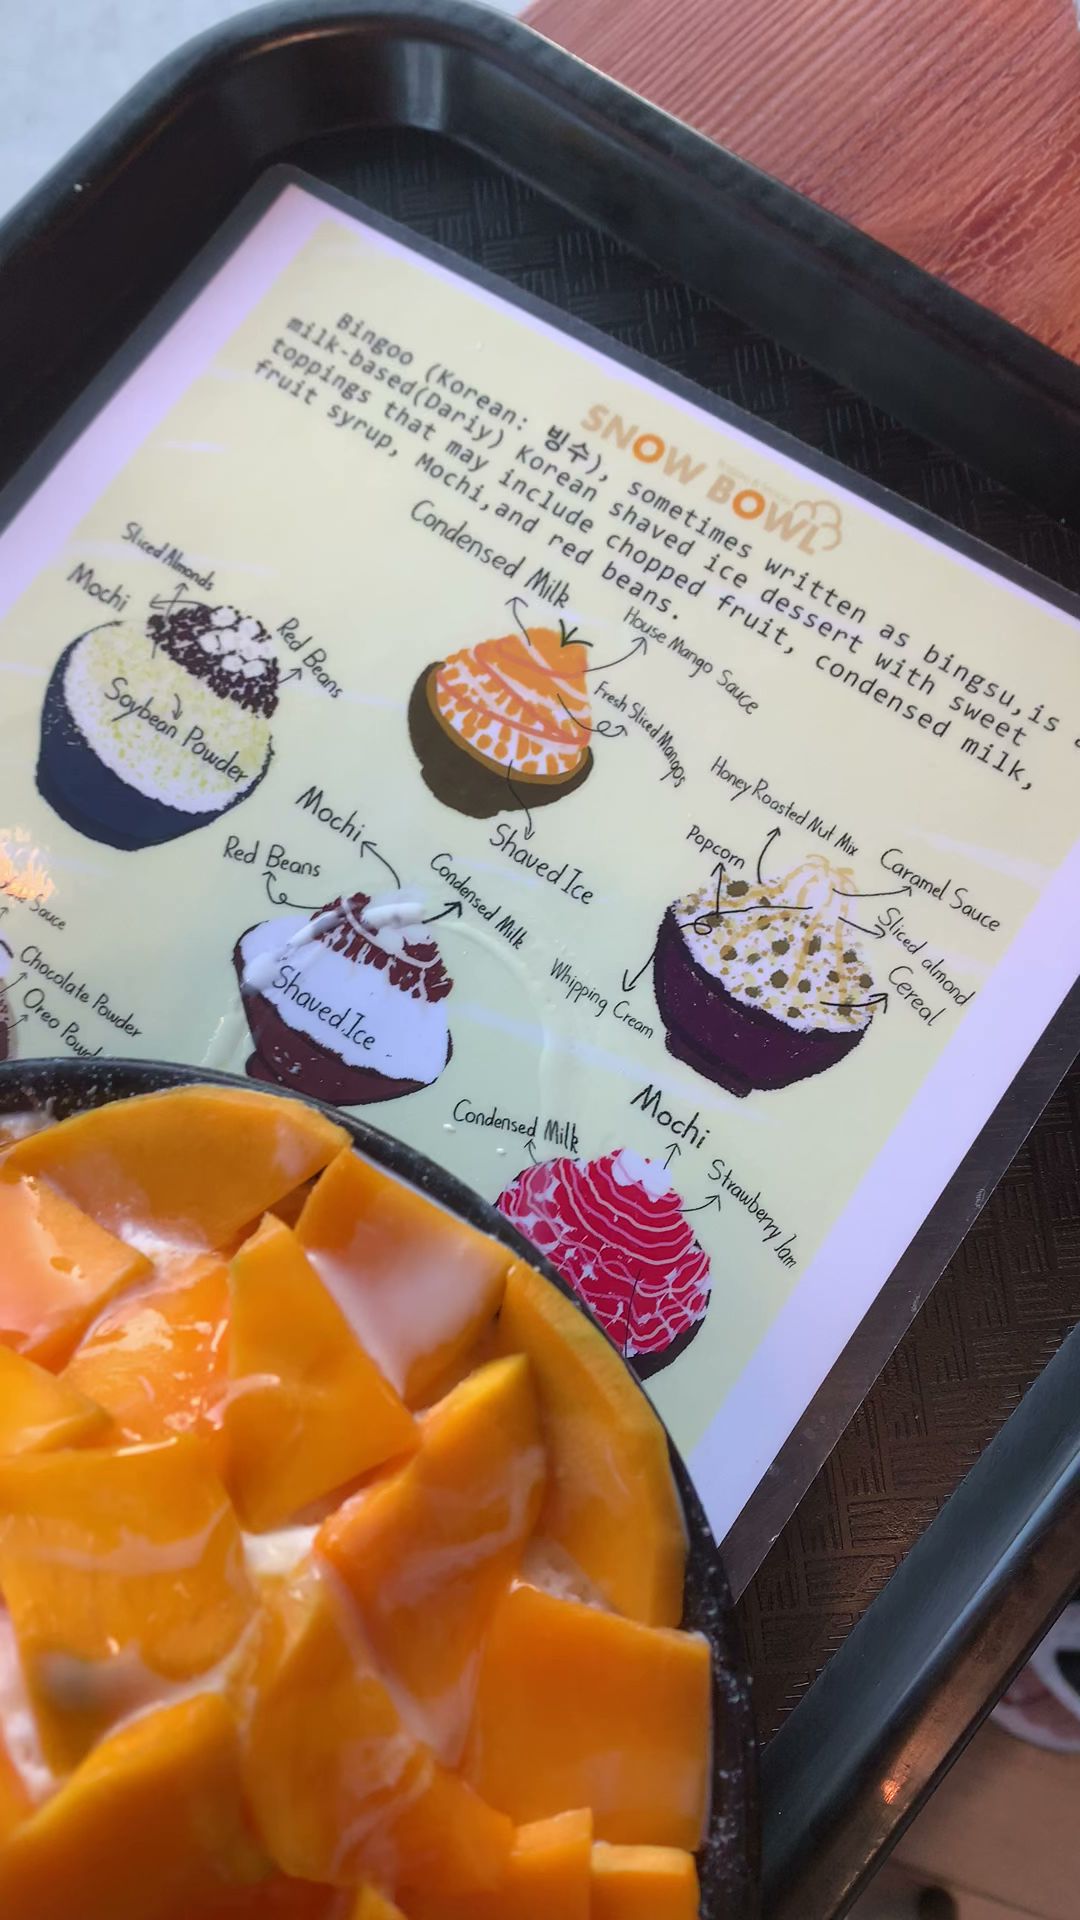 SNOW BOWL
Bingoo (Korean: 빙수), sometimes written as bingsu,is a
milk-based(Dariy) Korean shaved ice dessert with sweet
toppings that may include chopped fruit, condensed milk,
fruit syrup, Mochi,and red beans.
Sliced Almonds
Mochi
Red Beans
Soybean Powder
Condensed Milk
House Mango Sauce
Fresh Sliced Mangos
Shaved Ice
Mochi
Red Beans
Condensed Milk
Shaved Ice
Honey Roasted Nut Mix
Popcorn
Caramel Sauce
Sliced almond
Cereal
Whipping Cream
Sauce
Chocolate Powder
Oreo
Condensed Milk
Mochi
Strawberry Jam